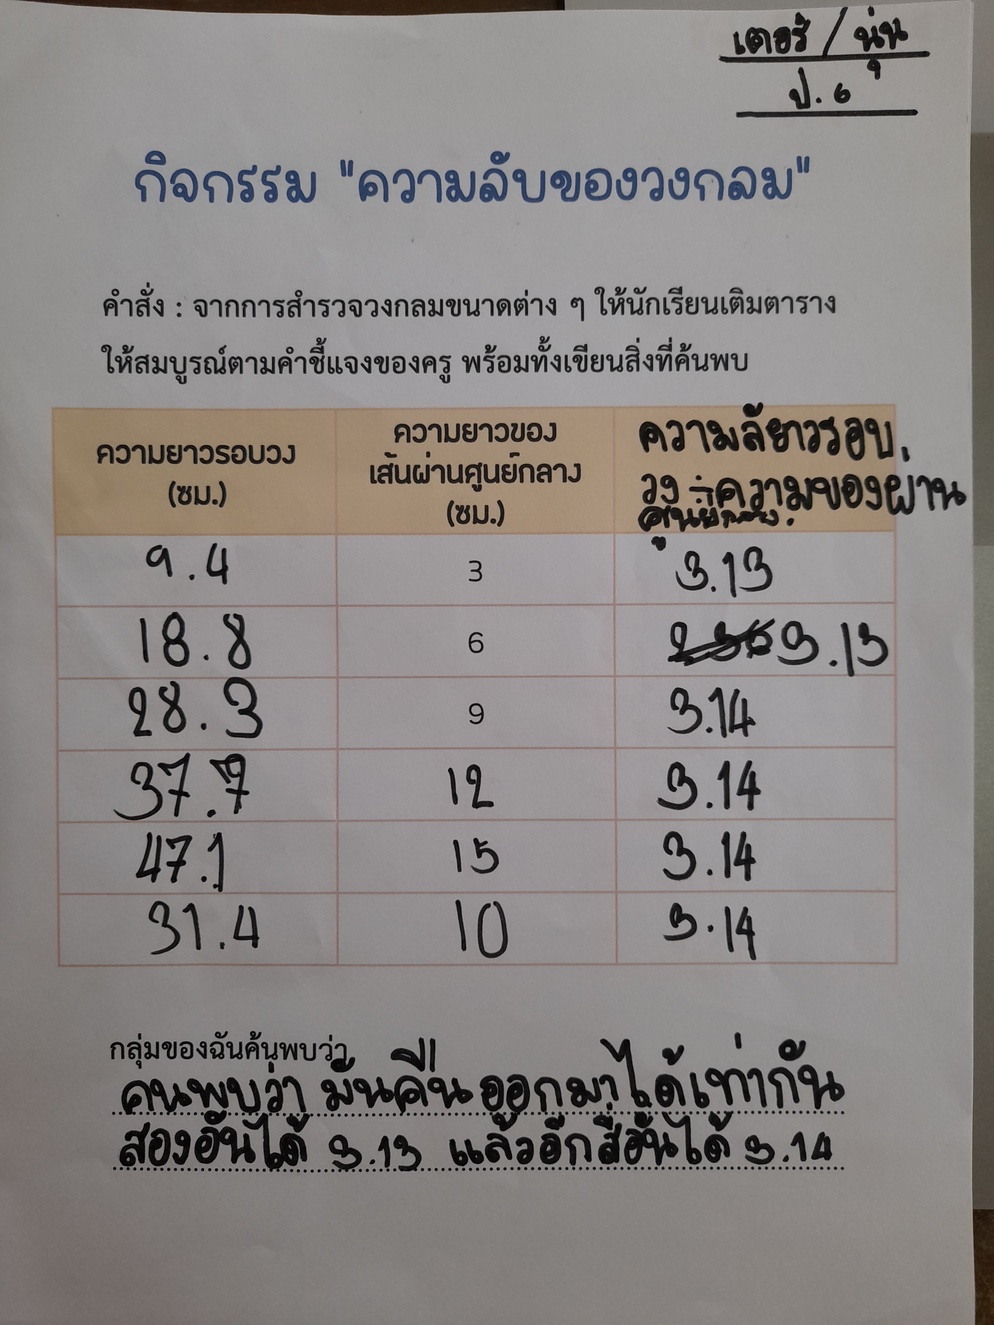 เตอร์ / นุ่น
ป. 6
กิจกรรม "ความลับของวงกลม"
คำสั่ง : จากการสำรวจวงกลมขนาดต่าง ๆ ให้นักเรียนเติมตาราง
ให้สมบูรณ์ตามคำชี้แจงของครู พร้อมทั้งเขียนสิ่งที่ค้นพบ
ความยาวรอบวง
(ซม.)
ความยาวของ
เส้นผ่านศูนย์กลาง
(ซม.)
ความลัยาวรอบ
วง ÷ความของผ่าน
ศูนย์กลาง.
9.4 3 3.13
18.8 6 3.13
28.3 9 3.14
37.7 12 3.14
47.1 15 3.14
31.4 10 3.14
กลุ่มของฉันค้นพบว่า
คนพบว่า มันคื่น ออกมาได้เท่ากัน
สองอันได้ 3.13 แล้วอีกสี่อันได้ 3.14